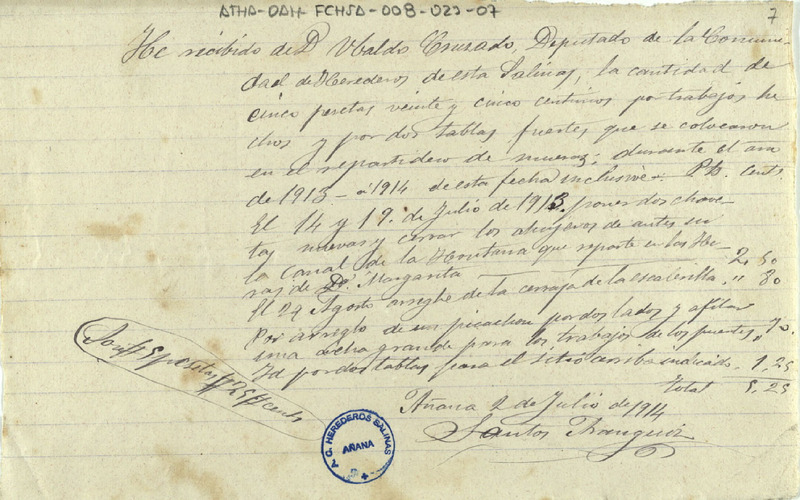 ATHA-DAH-FCHSA-008-023-07
7
He recibido de D. Ubaldo Crusado, Deputado de la Comuni-
dad de Herederos de esta Salinas, la cantidad de
cinco pesetas veinte y cinco centimos por trabajos he
chos y por dos tablas fuertes que se colocaron
en el repartidero de mueras, durante el año
de 1913 - a 1914 de esta fecha inclusive. Pts. cents.
El 14 y 19 de Julio de 1913. poner dos chave
tas nuevas y cerrar los abujeros de antes en
la Canal de la Hontana que reparte en las He-
ras de Dª. Margarita 2,50
El 24 Agosto arreglo de la cerraja de la escalerilla, " 80
Por arreglo de un picachon por dos lados y afilar
una hacha grande para los trabajos de los puentes, " 70.
Id por dos tablas para el sitio arriba indicado. 1,25
total 5,25
Añana 2 de Julio de 1914
Santos
Son # 5 # pesetas # 25 # cents
A. C. HEREDEROS SALINAS
AÑANA